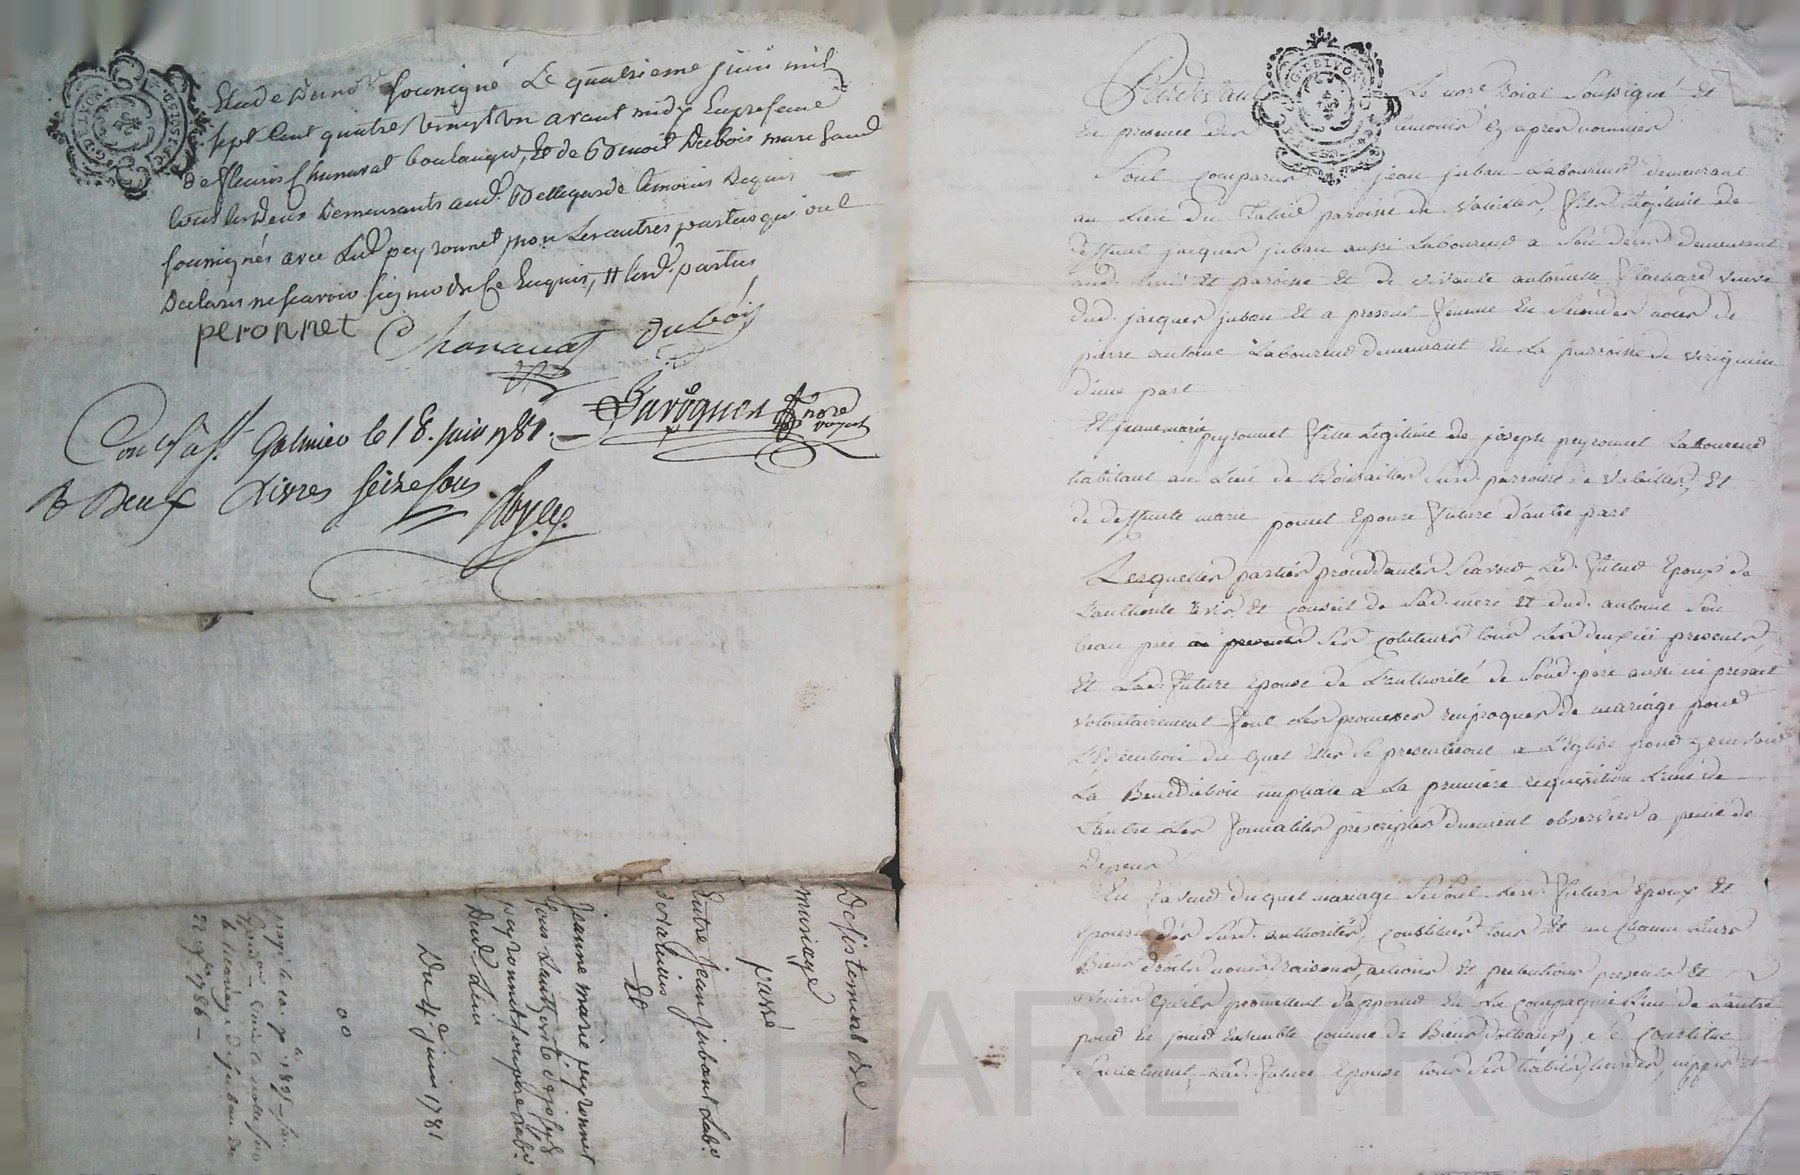 Etude du no.re soussigné Le quatrieme juin mil
sept Cent quatre vingt un avant midy En presence
de fleuris Chanavat boulanger, Et de benoit Dubois marchand
tous les deux Demeurants aud. Bellegarde temoins Requis
soussignés avec Led. peyronnet, non Les autres parties qui ont
Declaré ne scavoir signer de ce Enquis, # lesd. parties
peronnet Chanavat Dubois
Duroquen nore royal
Con.lé a st. Galmier le 18. juin 1781.
R Deux Livres seize sous
Pardevant Le no.re Roial Soussigné Et
En presence des temoins cy après nommés
Sont comparus jean juban Laboureur demeurant
au Lieu du paroisse de Valeilles, fils Légitime de
deffunt jacques juban aussi Laboureur a Son deces demeurant
aud. lieu Et paroisse Et de vivante antoinette veuve
dud. jacques juban Et a present femme En Secondes noces de
pierre antoine Laboureur demeurant En La parroisse de virignieu
d'une part
Et jeanne marie peyronnet fille Légitime de joseph peyronnet Laboureur
habitant au Lieu de Sud. parroisse de Valeilles, Et
de deffunte marie poncet Epouse future d'autre part
Lesquelles parties procedantes Scavoir, Led. futur Epoux de
L'authorité avis Et conseil de Sad. mere Et dud. antoine Son
beau pere Ses tous Les deux ici presents,
Et Lad. future Epouse de L'authorité de Sond. pere aussi ici present
volontairement font Les promesses reciproques de mariage pour
L'Execution du quel Elles Se presenteront a L'Eglise pour y recevoir
La Benediction nuptiale a La premiere requisition L'une de
L'autre Les formalités prescriptes duement observées a peine de
depens
En faveur duquel mariage Se sont Lesd. futurs Epoux Et
Epouse des Susd. authorités, constitués tous Et un chacun Leurs
Biens droits noms raisons, actions Et pretentions presents Et
avenirs qu'ils promettent d'apporter En La compagnie L'un de L'autre
pour En jouir Ensemble comme de Biens dotaux, Se Constitue
Specialement, Lad. future Epouse tous Ses habits, hardes, nippes Et
Desistement de
mariage
passé
Entre jean juban Lab.r
de valeilles
Et
jeanne marie peyronnet
sous L'authorité de joseph
peyronnet son pere Lab.r
Dud. Lieu
Du 4.e juin 1781
CHAREYRON